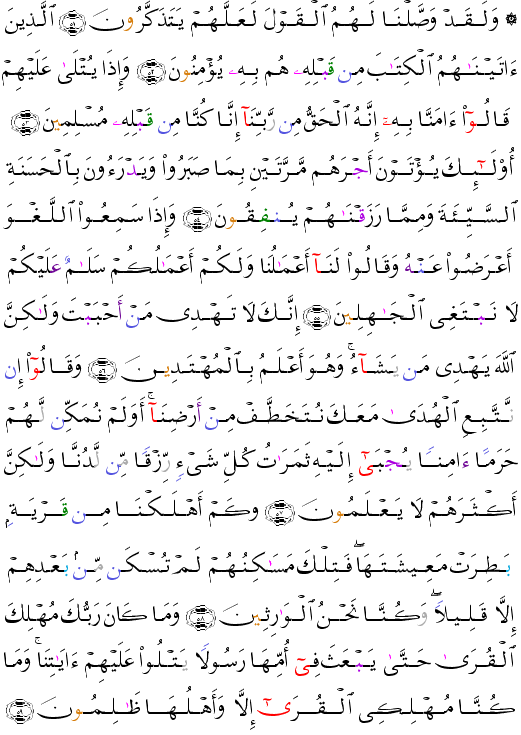 ۞ وَلَقَدْ وَصَّلْنَا لَهُمُ ٱلْقَوْلَ لَعَلَّهُمْ يَتَذَكَّرُونَ ﴿٥١﴾ ٱلَّذِينَ
ءَاتَيْنَـٰهُمُ ٱلْكِتَـٰبَ مِن قَبْلِهِۦ هُم بِهِۦ يُؤْمِنُونَ ﴿٥٢﴾ وَإِذَا يُتْلَىٰ عَلَيْهِمْ
قَالُوٓا۟ ءَامَنَّا بِهِۦٓ إِنَّهُ ٱلْحَقُّ مِن رَّبِّنَآ إِنَّا كُنَّا مِن قَبْلِهِۦ مُسْلِمِينَ ﴿٥٣﴾
أُو۟لَـٰٓئِكَ يُؤْتَوْنَ أَجْرَهُم مَّرَّتَيْنِ بِمَا صَبَرُوا۟ وَيَدْرَءُونَ بِٱلْحَسَنَةِ
ٱلسَّيِّئَةَ وَمِمَّا رَزَقْنَـٰهُمْ يُنفِقُونَ ﴿٥٤﴾ وَإِذَا سَمِعُوا۟ ٱللَّغْوَ
أَعْرَضُوا۟ عَنْهُ وَقَالُوا۟ لَنَآ أَعْمَـٰلُنَا وَلَكُمْ أَعْمَـٰلُكُمْ سَلَـٰمٌ عَلَيْكُمْ
لَا نَبْتَغِى ٱلْجَـٰهِلِينَ ﴿٥٥﴾ إِنَّكَ لَا تَهْدِى مَنْ أَحْبَبْتَ وَلَـٰكِنَّ
ٱللَّهَ يَهْدِى مَن يَشَآءُ ۚ وَهُوَ أَعْلَمُ بِٱلْمُهْتَدِينَ ﴿٥٦﴾ وَقَالُوٓا۟ إِن
نَّتَّبِعِ ٱلْهُدَىٰ مَعَكَ نُتَخَطَّفْ مِنْ أَرْضِنَآ ۚ أَوَلَمْ نُمَكِّن لَّهُمْ
حَرَمًا ءَامِنًا يُجْبَىٰٓ إِلَيْهِ ثَمَرَٰتُ كُلِّ شَىْءٍ رِّزْقًا مِّن لَّدُنَّا وَلَـٰكِنَّ
أَكْثَرَهُمْ لَا يَعْلَمُونَ ﴿٥٧﴾ وَكَمْ أَهْلَكْنَا مِن قَرْيَةٍۭ
بَطِرَتْ مَعِيشَتَهَا ۖ فَتِلْكَ مَسَـٰكِنُهُمْ لَمْ تُسْكَن مِّنۢ بَعْدِهِمْ
إِلَّا قَلِيلًا ۖ وَكُنَّا نَحْنُ ٱلْوَٰرِثِينَ ﴿٥٨﴾ وَمَا كَانَ رَبُّكَ مُهْلِكَ
ٱلْقُرَىٰ حَتَّىٰ يَبْعَثَ فِىٓ أُمِّهَا رَسُولًا يَتْلُوا۟ عَلَيْهِمْ ءَايَـٰتِنَا ۚ وَمَا
كُنَّا مُهْلِكِى ٱلْقُرَىٰٓ إِلَّا وَأَهْلُهَا ظَـٰلِمُونَ ﴿٥٩﴾